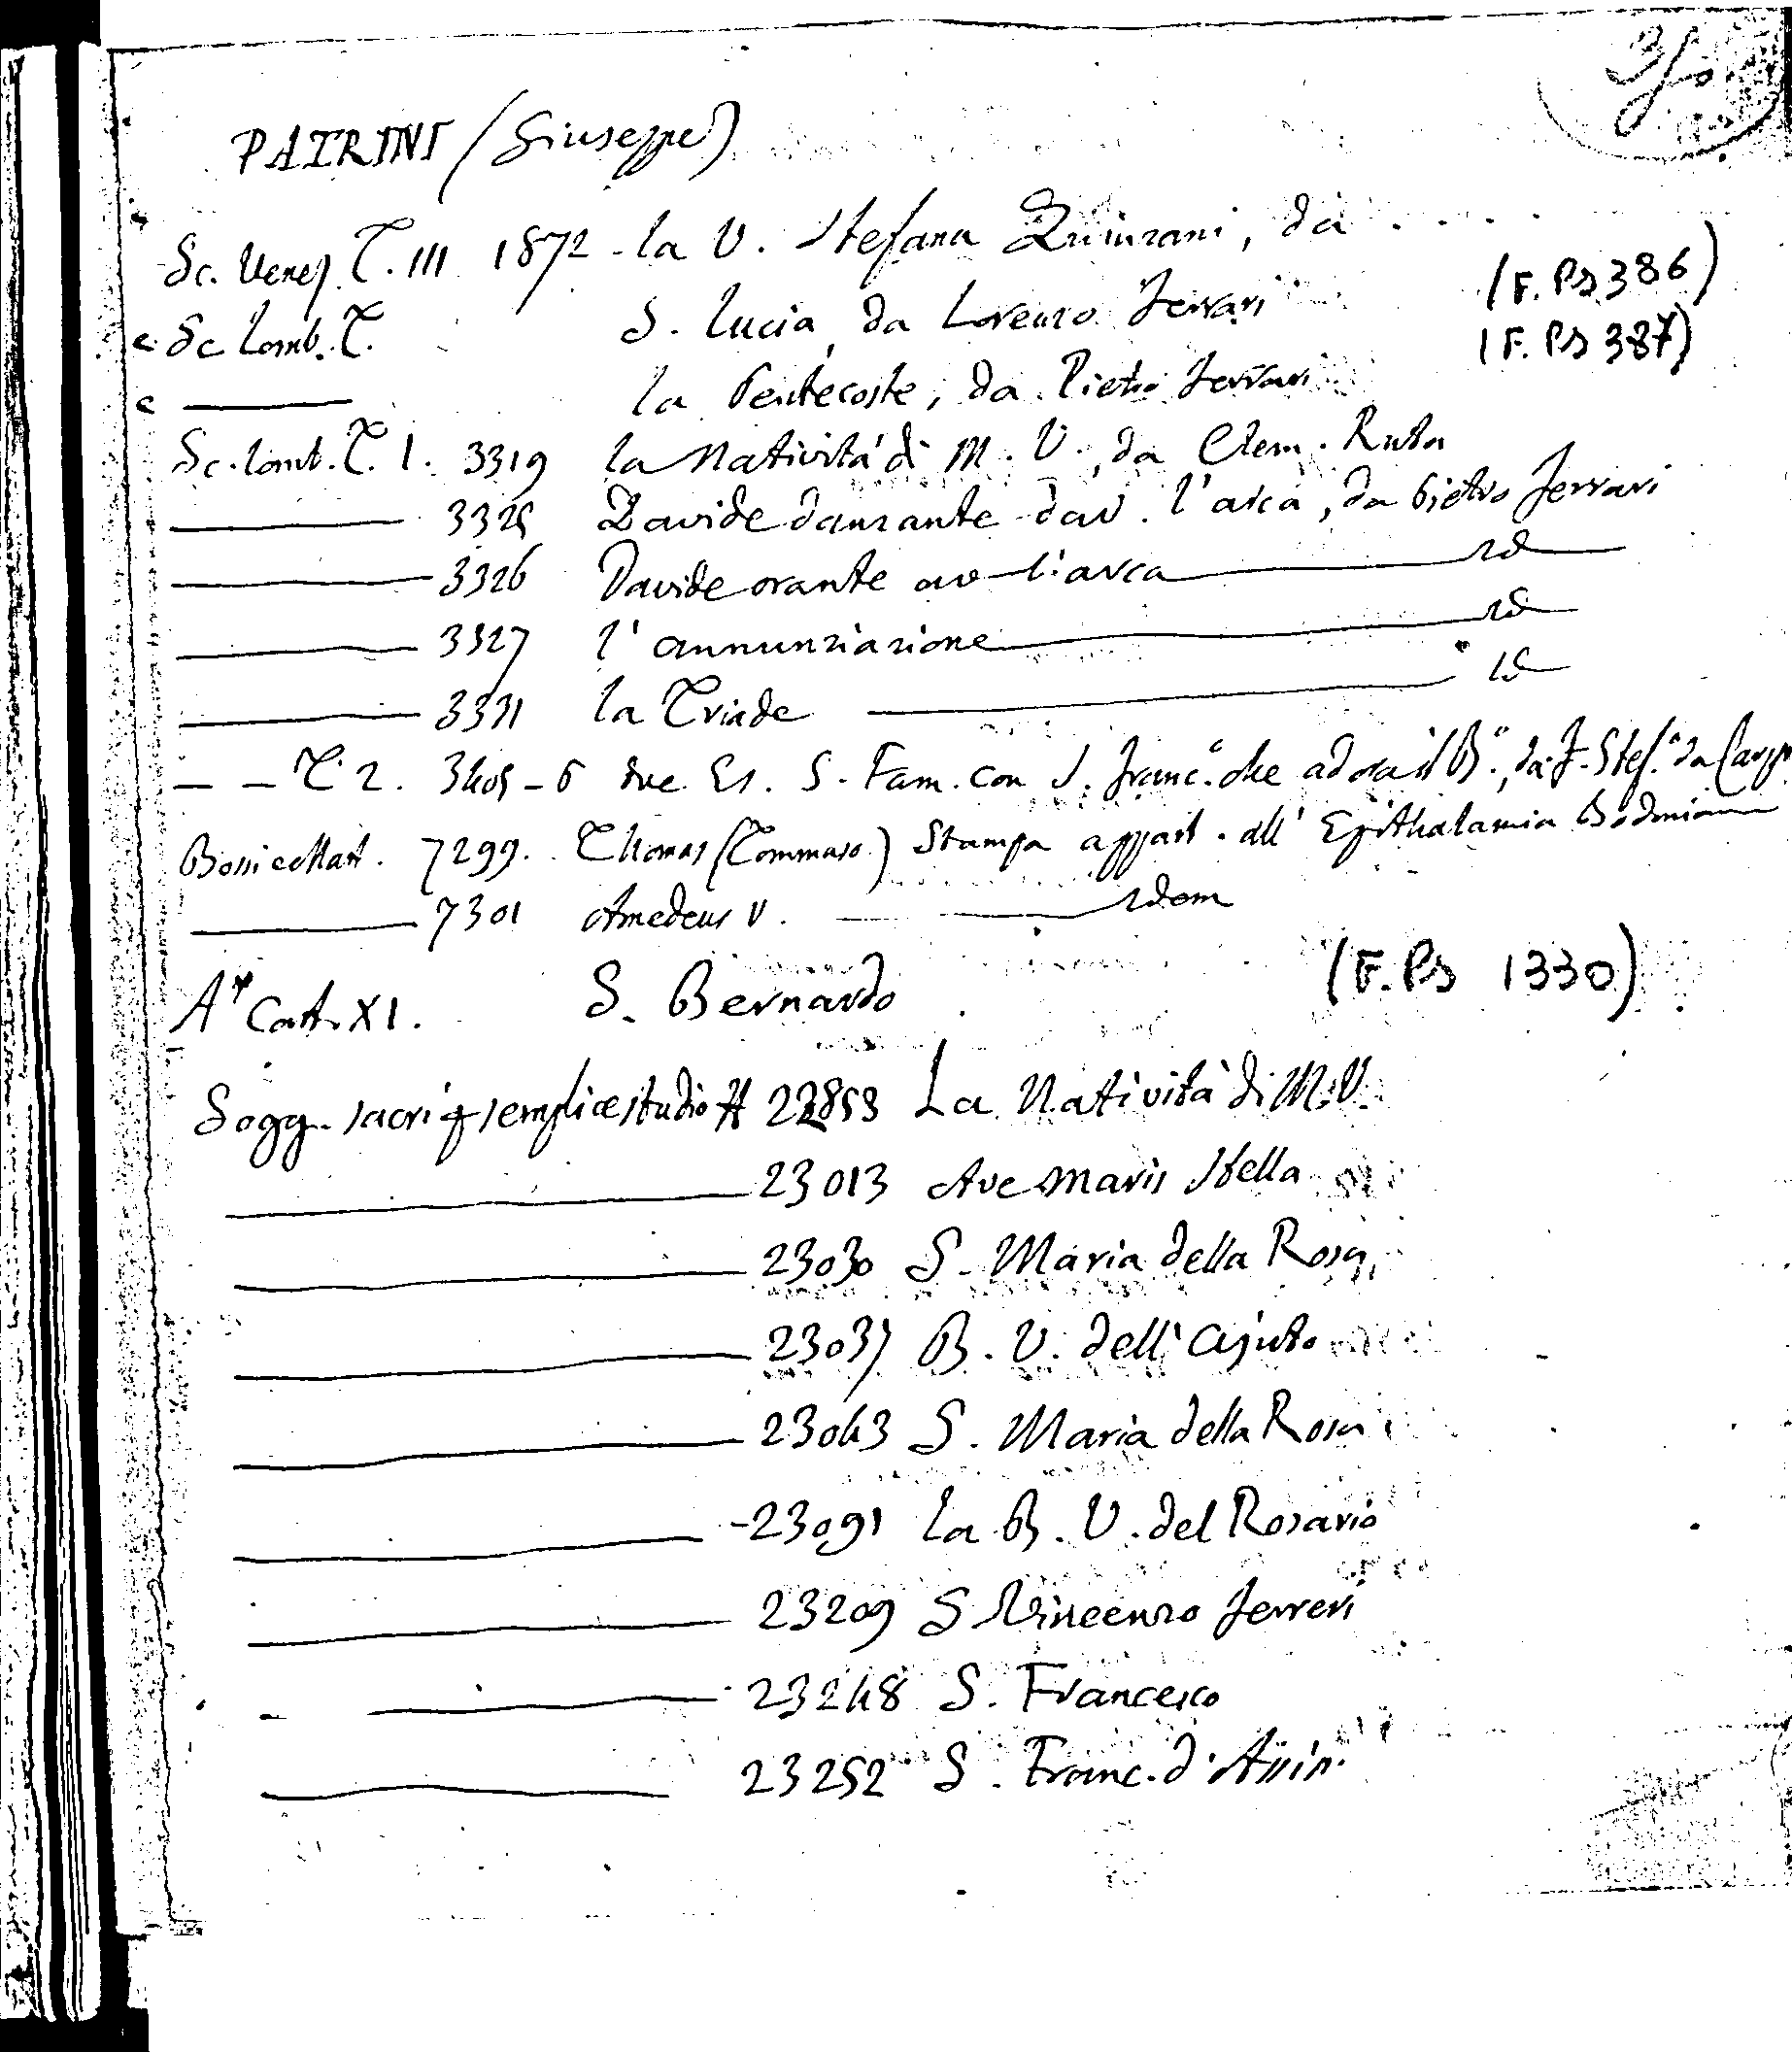 PATRINI (Giuseppe)
Sc. Venez. T. III 1872 - la V. Stefana Quinzani, da . . . .
c Sc Lomb. T. S. Lucia, da Lorenzo Ferrari (F. Ps 386)
c ——— la Pentecoste, da Pietro Ferrari (F. Ps 387)
Sc. lomb. T. 1. 3319 la Natività di M. V., da Clem. Ruta
——— 3325 Davide danzante dav. l'arca, da Pietro Ferrari
——— 3326 Davide orante av l'arca ——— id
——— 3327 l'annunziazione ——— id
——— 3331 la Triade ——— id
— — T. 2. 3405-6 due Es. S. Fam. con S. Franc.º che adora il B.º, da J. Stef.º da Carp
Bossi e Mart. 7299. Thomas (Tommaso) Stampa appart. all' Epithalamia Bodoniana
——— 7301 Amedeus V. ——— idem
Cart. XI. S. Bernardo (F. Ps 1330)
Sogg. sacri p semplice studio # 22853 La Natività di M. V.
——— 23013 Ave maris stella
——— 23030 S. Maria della Rosa
——— 23037 B. V. dell'Ajuto
——— 23043 S. Maria della Rosa
——— 23091 La B. V. del Rosario
——— 23209 S Vincenzo Ferreri
——— 23248 S. Francesco
——— 23252 S. Franc. d'Assisi